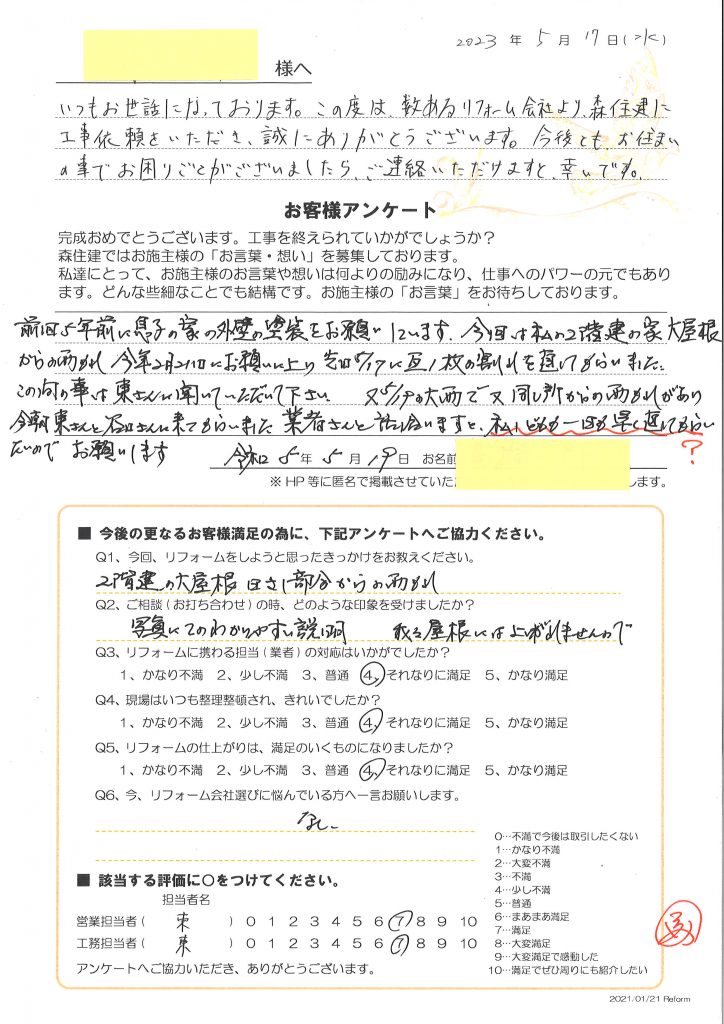 2023 年 5 月 17 日(水)
様へ
いつもお世話になっております。この度は、数あるリフォーム会社より、森住建に
工事依頼をいただき、誠にありがとうございます。今後とも、お住まい
の事でお困りごとがございましたら、ご連絡いただけますと、幸いです。
お客様アンケート
完成おめでとうございます。工事を終えられていかがでしょうか?
森住建ではお施主様の「お言葉・想い」を募集しております。
私達にとって、お施主様のお言葉や想いは何よりの励みになり、仕事へのパワーの元でもあり
ます。どんな些細なことでも結構です。お施主様の「お言葉」をお待ちしております。
前回5年前に息子の家の外壁の塗装をお願いしています、今回は私の2階建の家大屋根
からの雨もれ 今年2月21日にお願いに上り 5/17に瓦1枚の割れを直してもらいました
この間の事は東さんに聞いていただいて下さい 又5/19の大雨で又同じ所からの雨もれがあり
東さんと さんに来てもらいました 業者さんと話し合いますと、私しどもも一日も早く直してもらい
たいので お願いします ?
令和 5 年 5 月 19 日 お名前
※ HP 等に匿名で掲載させていた します。
■ 今後の更なるお客様満足の為に、下記アンケートへご協力ください。
Q1、今回、リフォームをしようと思ったきっかけをお教えください。
2階建の大屋根 日さし部分からの雨もれ
Q2、ご相談(お打ち合わせ)の時、どのような印象を受けましたか?
写真にてのわかりやすい説明 我々屋根には上がれませんので
Q3、リフォームに携わる担当(業者)の対応はいかがでしたか?
1、かなり不満 2、少し不満 3、普通 4、それなりに満足 5、かなり満足
Q4、現場はいつも整理整頓され、きれいでしたか?
1、かなり不満 2、少し不満 3、普通 4、それなりに満足 5、かなり満足
Q5、リフォームの仕上がりは、満足のいくものになりましたか?
1、かなり不満 2、少し不満 3、普通 4、それなりに満足 5、かなり満足
Q6、今、リフォーム会社選びに悩んでいる方へ一言お願いします。
なし
■ 該当する評価に○をつけてください。
担当者名
営業担当者( 東 ) 0 1 2 3 4 5 6 7 8 9 10
工務担当者( 東 ) 0 1 2 3 4 5 6 7 8 9 10
アンケートへご協力いただき、ありがとうございます。
0…不満で今後は取引したくない
1…かなり不満
2…大変不満
3…不満
4…少し不満
5…普通
6…まあまあ満足
7…満足
8…大変満足
9…大変満足で感動した
10…満足でぜひ周りにも紹介したい
2021/01/21 Reform